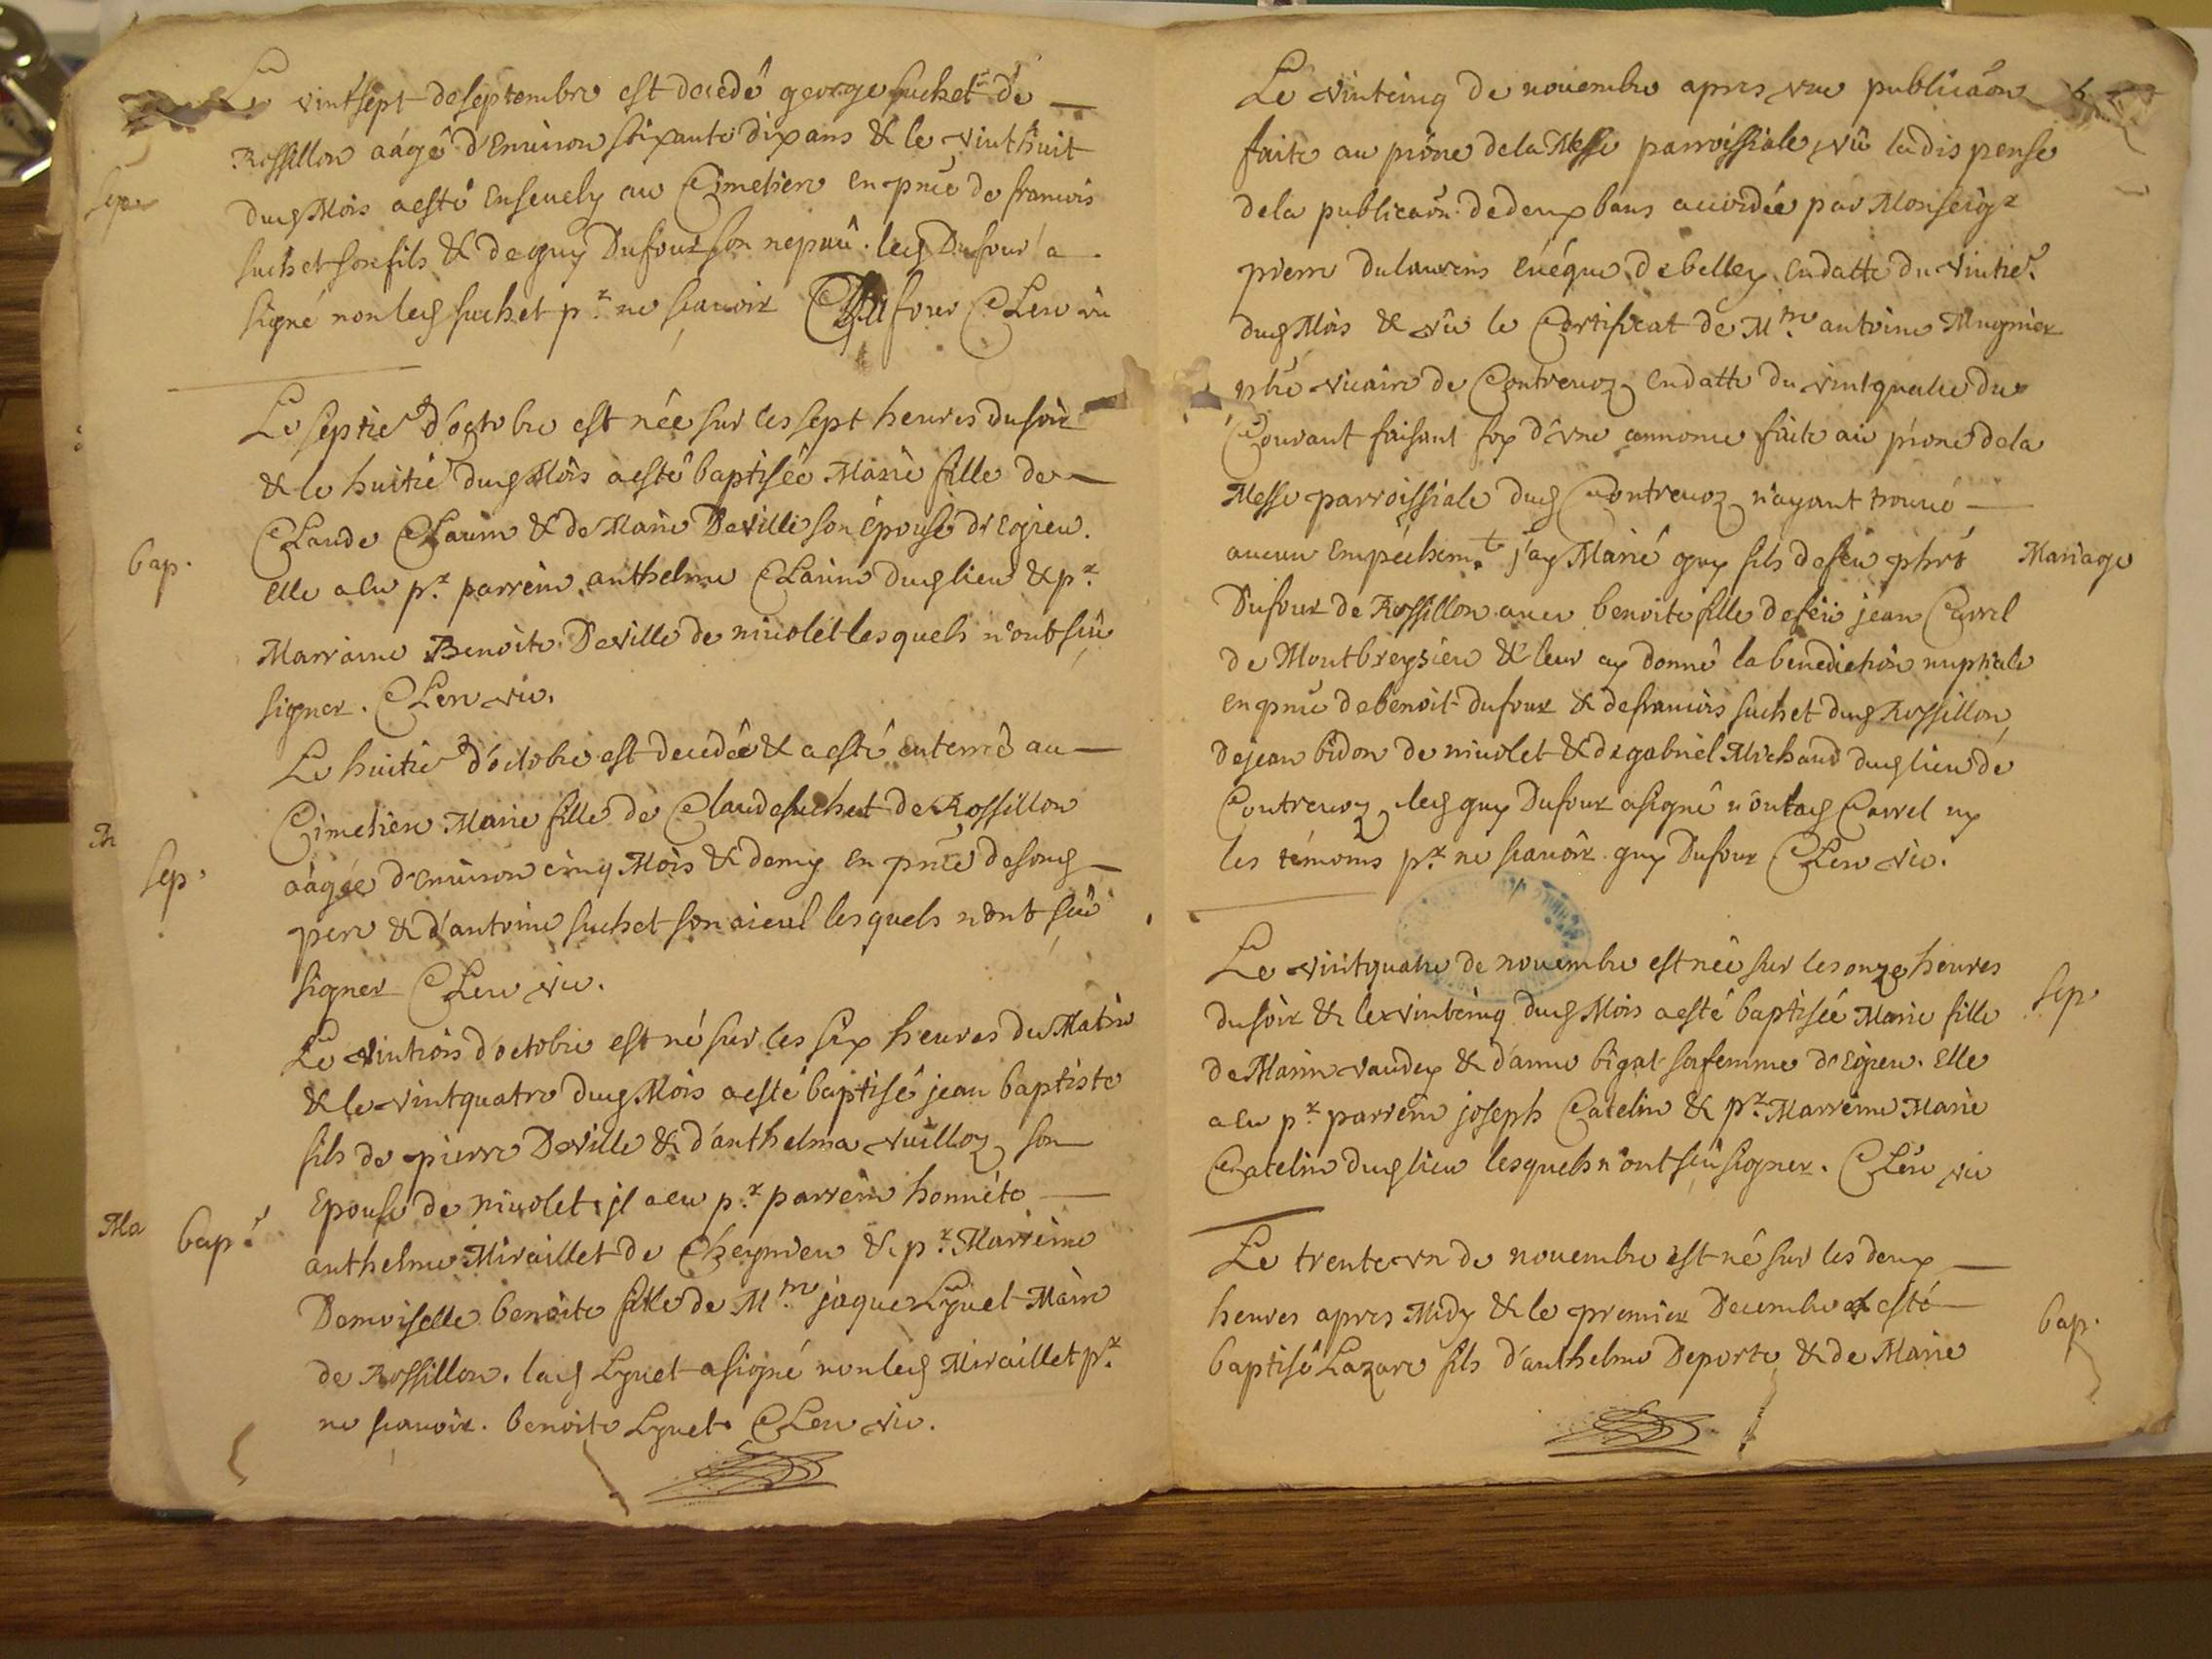 Le vintsept de septembre est decedé george suchet de
Rossillon aâgé d'enuiron soixante dix ans & le vinthuit
sep.
dud Mois a esté enseuely au Cimetiere en pnce de francois
suchet son fils & de guy Dufour son nepueu. led Dufour a
signé non led suchet pr. ne sçauoir Dufour Clerc vic
Le septie d'octobre est née sur les sept heures du soir
& le huitie dud Mois a esté baptisée Marie fille de
Claude Clarin & de Marie Deville son épouse d'Egieu.
bap.
elle a eu pr. parrein anthelme Clarin dud lieu & pr.
Marraine Benoite Deville de niuolet lesquels n'ont sçû
signer. Clerc vic.
Le huitie d'octobre est decedée & a esté enterrée au
Cimetiere Marie fille de Claude suchet de Rossillon
sep.
aâgée d'enuiron cinq Mois & demy en pnce de sond
pere & d'antoine suchet son aieul lesquels n'ont sçû
signer Clerc vic.
Le vintrois d'octobre est né sur les six heures du Matin
& le vintquatre dud Mois a esté baptisé jean baptiste
fils de pierre Deville & d'anthelma vuilloz son
Epouse de niuolet, il a eu pr. parrein honnéte
Ma
bap.
anthelme Miraillet de Cheynieu & pr. Marreine
Demoiselle benoite fille de Mre jaque Lyuet Maire
de Rossillon. lad Lyuet a signé non led Miraillet pr.
ne scauoir. benoite Lyuet Clerc vic.
Le vintcinq de nouembre apres vne publicaôn 6
faite au prône de la Messe parroissiale, vû la dispense
de la publicaôn de deux bans accordée par Monseigr
pierre Dulaurens euéque de belley en datte du vintie.
dud Mois & vû le Certificat de Mre antoine Mugnier
pbre vicaire de Contreuoz en datte du vintquatre du
Courant faisant foy d'vne annonce faite au prone de la
Messe parroissiale dud Contreuoz n'ayant trouué
aucun empéchemt. j'ay Marié guy fils de feu phrt
Mariage
Dufour de Rossillon auec benoite fille de feu jean Carrel
de Montbreysieu & leur ay donné la benediction nuptiale
en pnce de benoit dufour & de francois suchet dud Rossillon,
de jean bidon de niuolet & de gabriel Michaud dud lieu de
Contreuoz, led guy Dufour a signé non lad Carrel ny
les témoins pr. ne scauoir. guy Dufour Clerc vic.
Le vintquatre de nouembre est née sur les onze heures
sep.
du soir & le vintcinq dud Mois a esté baptisée Marie fille
de Marin vaudey & d'anne bigat sa femme d'Egieu. Elle
a eu pr. parrein joseph Catelin & pr. Marreine Marie
Catelin dud lieu lesquels n'ont sçû signer. Clerc vic
Le trente vn de nouembre est né sur les deux
heures apres Midy & le premier Decembre a esté
bap.
baptisé Lazare fils d'anthelme Deporte & de Marie